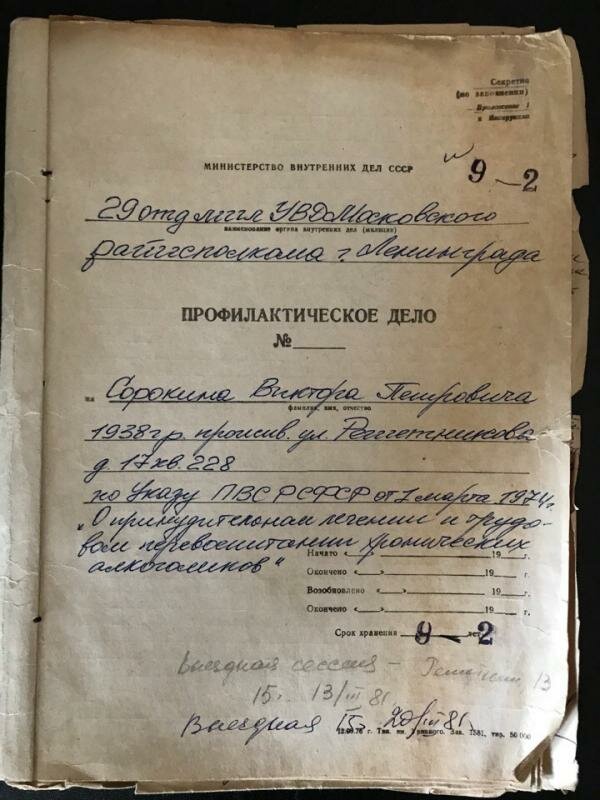 Секретно
(по заполнении)
Приложение 1
к Инструкции
МИНИСТЕРСТВО ВНУТРЕННИХ ДЕЛ СССР
9-2
29 отд мил УВД Московского
наименование органа внутренних дел (милиции)
райисполкома г. Ленинграда
ПРОФИЛАКТИЧЕСКОЕ ДЕЛО
№
на Сорокина Виктора Петровича
фамилия, имя, отчество
1938 г.р. прожив. ул. Решетникова
д. 17 кв. 228
по Указу ПВС РСФСР от 1 марта 1974 г.
„О принудительном лечении и трудо-
вом перевоспитании хронических
алкоголиков"
Начато «___» 19 г.
Окончено «___» 19 г.
Возобновлено «___» 19 г.
Окончено «___» 19 г.
Срок хранения 9-2 лет
Выездная сессия - 13
15 13/III 81
Выездная 15 20/III 81.
12.09.76 г. Тип. им. Зак. 1581, тир. 50 000